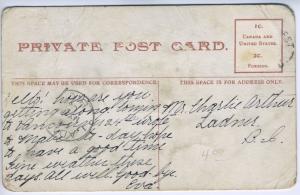 PRIVATE POST CARD.
1C.
CANADA AND
UNITED STATES.
2C.
FOREIGN.
THIS SPACE MAY BE USED FOR CORRESPONDENCE
THIS SPACE IS FOR ADDRESS ONLY.
Hello how are you
getting along coming
to
to have a good time
fine weather these
days. all well good-bye.
Eva
Mr. Charlie Arthur
Ladner
B.C.
400